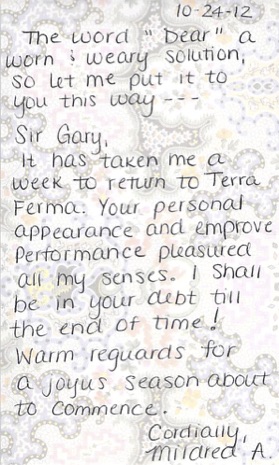 10-24-12
The word "Dear" a
worn & weary solution,
so let me put it to
you this way ---
Sir Gary,
It has taken me a
week to return to Terra
Ferma. Your personal
appearance and emprove
Performance pleasured
all my senses. I shall
be in your debt till
the end of time!
Warm reguards for
a joyus season about
to commence.
Cordially,
Mildred A.